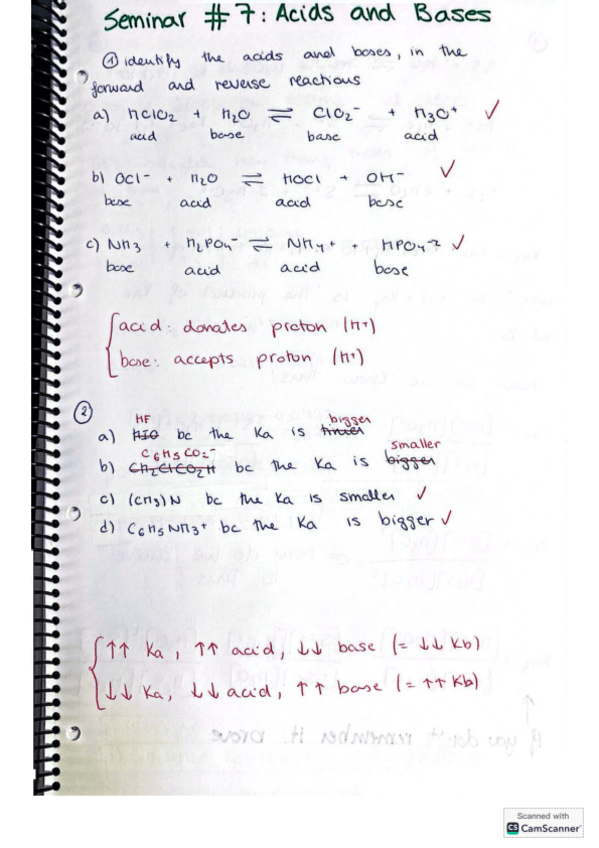 Seminar #7: Acids and Bases
① identify the acids and bases, in the
forward and reverse reactions
a) HClO2 + H2O ⇌ ClO2⁻ + H3O⁺ ✓
acid base base acid
b) OCl⁻ + H2O ⇌ HOCl + OH⁻ ✓
base acid acid base
c) NH3 + H2PO4⁻ ⇌ NH4⁺ + HPO4⁻² ✓
base acid acid base
acid: donates proton (H⁺)
base: accepts proton (H⁺)
②
HF bigger
a) HIO bc the Ka is
C6H5CO2⁻ smaller
b) CH2ClCO2H bc the Ka is bigger
c) (CH3)N bc the Ka is smaller ✓
d) C6H5NH3⁺ bc the Ka is bigger ✓
↑↑ Ka, ↑↑ acid, ↓↓ base (= ↓↓ Kb)
↓↓ Ka, ↓↓ acid, ↑↑ base (= ↑↑ Kb)
If you don't remember it, prove
Scanned with
CS CamScanner